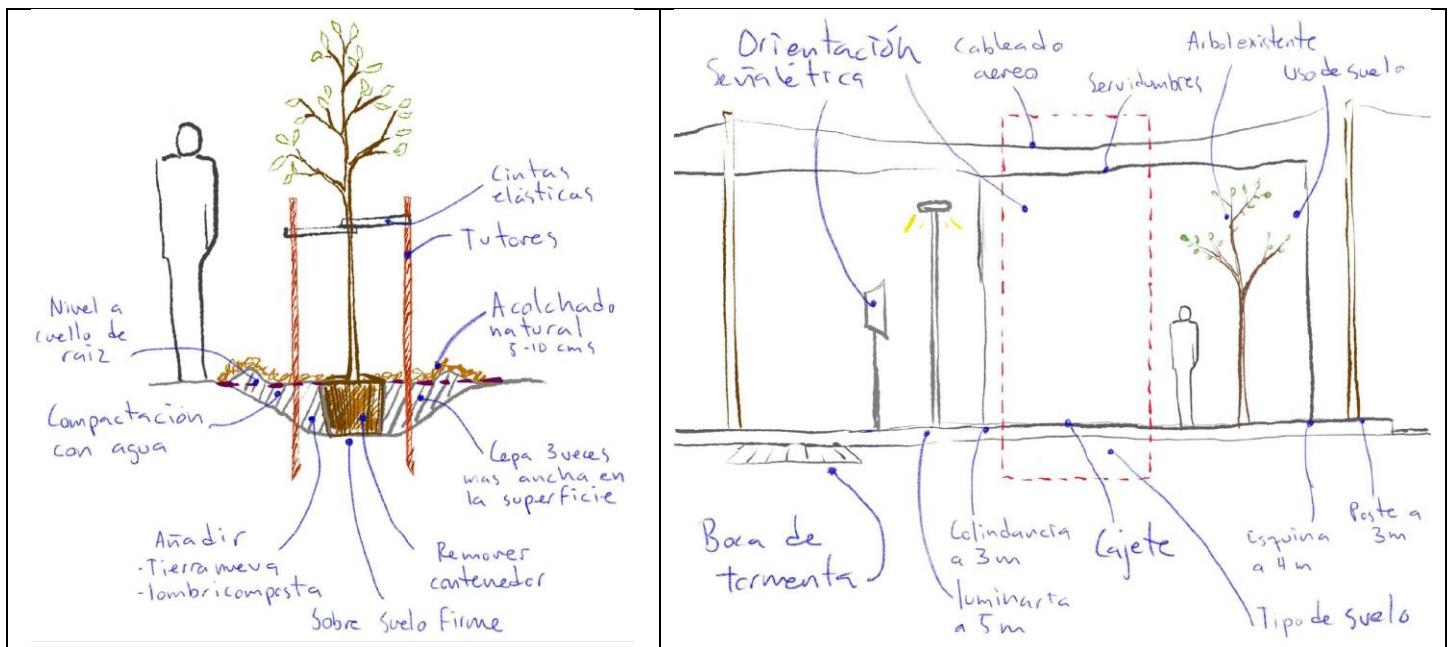 Cintas
elásticas
Tutores
Nivel a
cuello de
raiz
Acolchado
natural
5-10 cms
Compactación
con agua
Cepa 3 veces
mas ancha en
la superficie
Añadir
-Tierra nueva
-lombricomposta
Remover
contenedor
Sobre suelo firme
Orientación
Señalética
Cableado
aereo
Servidumbres
Arbol existente
Uso de suelo
Boca de
tormenta
Colindancia
a 3 m
luminaria
a 5 m
Cajete
Esquina
a 4 m
Poste a
3 m
Tipo de suelo